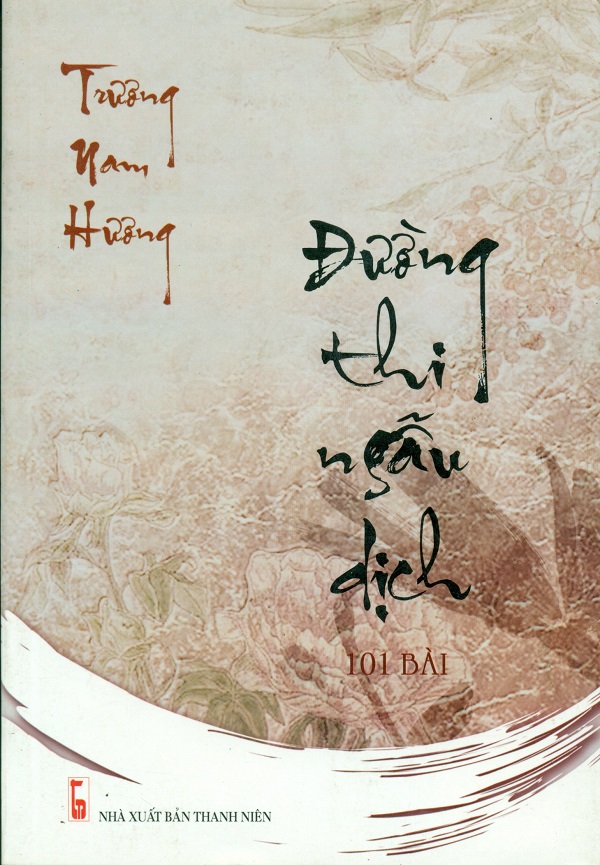 Trương
Nam
Hương
Đường
thi
ngẫu
dịch
101 BÀI
NHÀ XUẤT BẢN THANH NIÊN